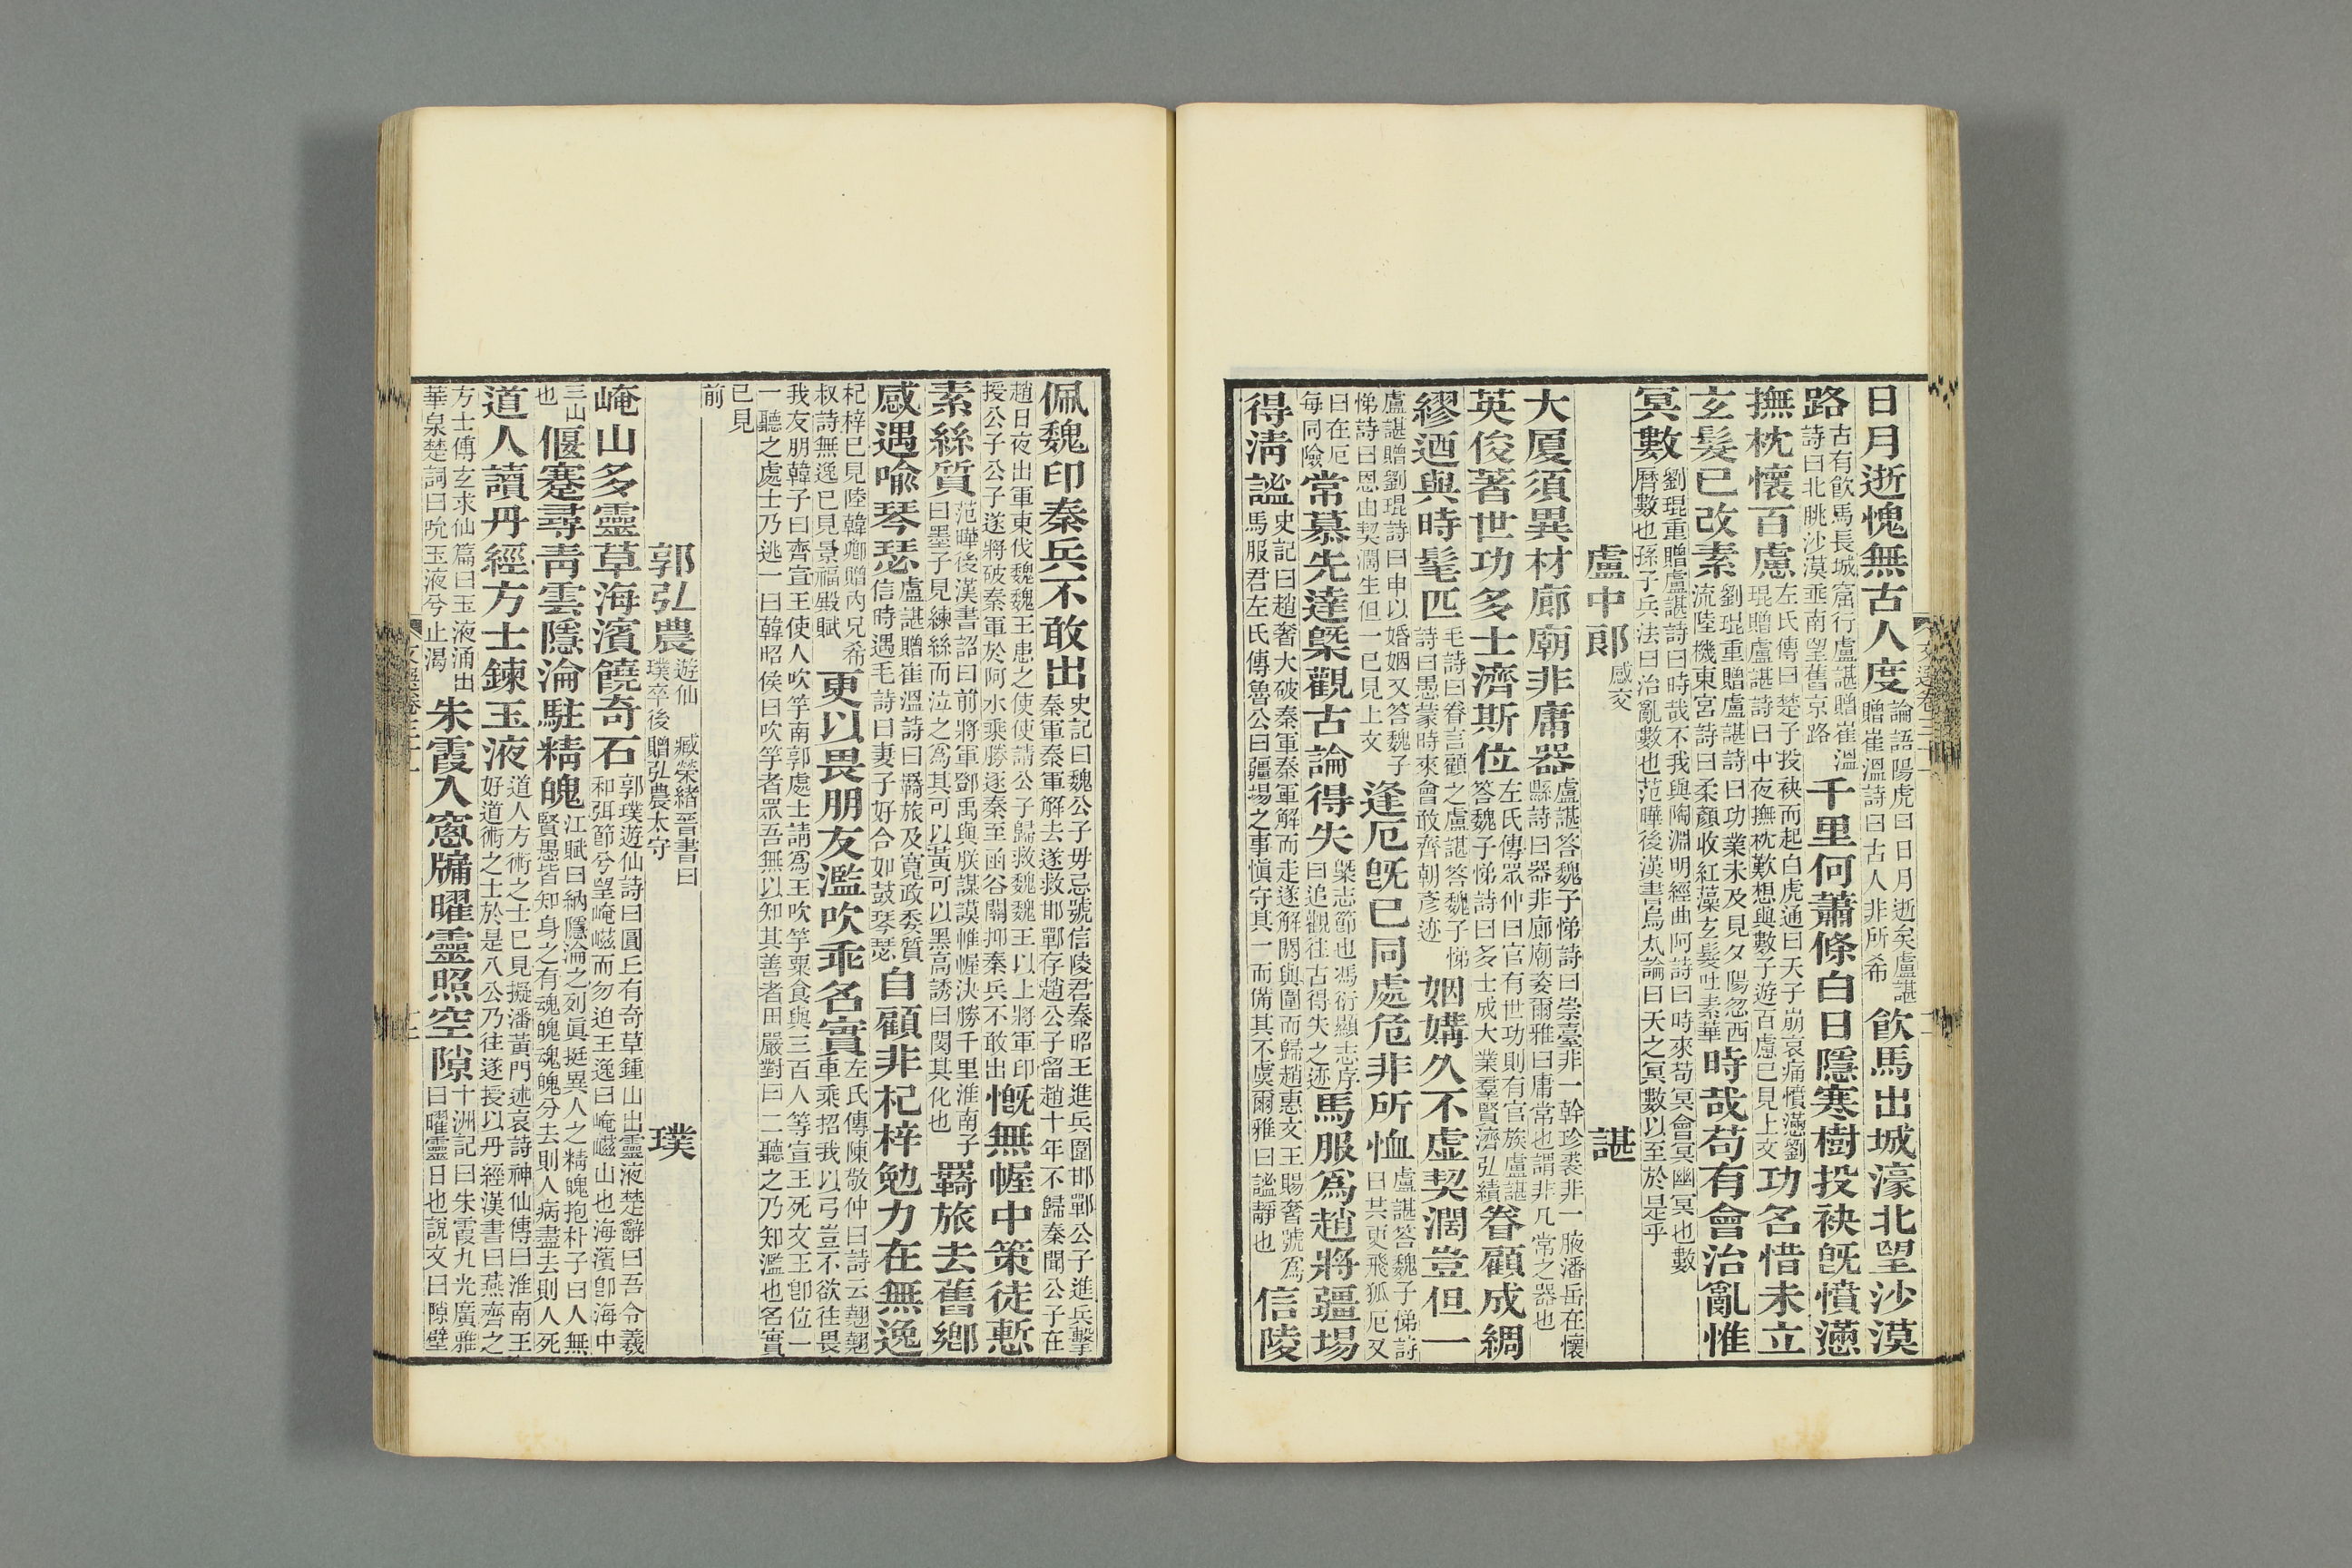 日月逝愧無古人度論語陽虎曰日月逝矣盧諶贈崔溫詩曰古人非所希飲馬出城濠北望沙漠
路古有飲馬長城窟行盧諶贈崔溫詩曰北眺沙漠垂南望舊京路千里何蕭條白日隱寒樹投袂旣憤懣
撫枕懷百慮左氏傳曰楚子投袂而起白虎通曰天子崩哀痛憤懣劉琨贈盧諶詩曰中夜撫枕歎想與數子遊百慮已見上文功名惜未立
玄髮已改素劉琨重贈盧諶詩曰功業未及見夕陽忽西流陸機東宮詩曰柔顏收紅藻玄髮吐素華時哉苟有會治亂惟
冥數劉琨重贈盧諶詩曰時哉不我與陶淵明經曲阿詩曰時來苟冥會冥幽冥也數曆數也孫子兵法曰治亂數也范曄後漢書烏太論曰天之冥數以至於是乎
盧中郎感交諶
大厦須異材廊廟非庸器盧諶答魏子悌詩曰崇臺非一幹珍裘非一腋潘岳在懷縣詩曰器非廊廟姿爾雅曰庸常也謂非凡常之器也
英俊著世功多士濟斯位左氏傳眾仲曰官有世功則有官族盧諶答魏子悌詩曰多士成大業羣賢濟弘績眷顧成綢
繆迺與時髦匹毛詩曰眷言顧之盧諶答魏子悌詩曰愚蒙時來會敢齊朝彥迹姻媾久不虛契濶豈但一
盧諶贈劉琨詩曰申以婚姻又答魏子悌詩曰恩由契濶生但一已見上文逢厄旣已同處危非所恤盧諶答魏子悌詩曰共更飛狐厄又
曰在厄每同險常慕先達槩觀古論得失槩志節也馮衍顯志序曰追觀往古得失之迹馬服爲趙將疆埸
得淸謐史記曰趙奢大破秦軍秦軍解而走遂解閼與圍而歸趙惠文王賜奢號爲馬服君左氏傳魯公曰疆埸之事愼守其一而備其不虞爾雅曰謐靜也信陵
佩魏印秦兵不敢出史記曰魏公子毋忌號信陵君秦昭王進兵圍邯鄲公子進兵擊秦軍秦軍解去遂救邯鄲存趙公子留趙十年不歸秦聞公子在
趙日夜出軍東伐魏魏王患之使使請公子歸救魏魏王以上將軍印授公子公子遂將破秦軍於阿水乘勝逐秦至函谷關抑秦兵不敢出慨無幄中策徒慙
素絲質范曄後漢書詔曰前將軍鄧禹與朕謀謨帷幄決勝千里淮南子曰墨子見練絲而泣之爲其可以黃可以黑高誘曰閔其化也羇旅去舊鄉
感遇喩琴瑟盧諶贈崔溫詩曰羇旅及寬政委質信時遇毛詩曰妻子好合如鼓琴瑟自顧非杞梓勉力在無逸
杞梓已見陸韓卿贈內兄希叔詩無逸已見景福殿賦更以畏朋友濫吹乖名實左氏傳陳敬仲曰詩云翹翹車乘招我以弓豈不欲往畏
我友朋韓子曰齊宣王使人吹竽南郭處士請爲王吹竽粟食與三百人等宣王死文王卽位一一聽之處士乃逃一曰韓昭侯曰吹竽者眾吾無以知其善者田嚴對曰一一聽之乃知濫也名實
已見前
郭弘農遊仙 臧榮緒晉書曰璞卒後贈弘農太守璞
崦山多靈草海濱饒奇石郭璞遊仙詩曰圓丘有奇草鍾山出靈液楚辭曰吾令羲和弭節兮望崦嵫而勿迫王逸曰崦嵫山也海濱卽海中
三山也偃蹇尋靑雲隱淪駐精魄江賦曰納隱淪之列眞挺異人之精魄抱朴子曰人無賢愚皆知身之有魂魄魂魄分去則人病盡去則人死
道人讀丹經方士鍊玉液道人方術之士已見擬潘黃門述哀詩神仙傳曰淮南王好道術之士於是八公乃往遂授以丹經漢書曰燕齊之
方士傅玄求仙篇曰玉液涌出華泉楚詞曰吮玉液兮止渴朱霞入窻牖曜靈照空隙十洲記曰朱霞九光廣雅曰曜靈日也說文曰隙壁